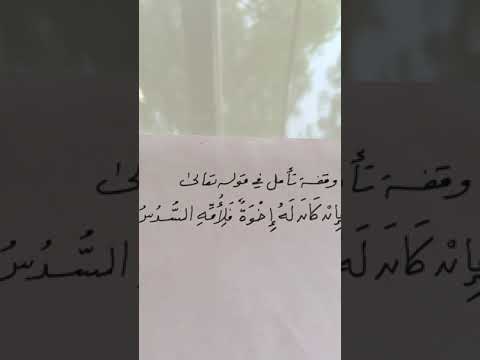 وقفة تأمل في قوله تعالىٰ
فَإِنْ كَانَ لَهُ إِخْوَةٌ فَلِأُمِّهِ السُّدُسُ